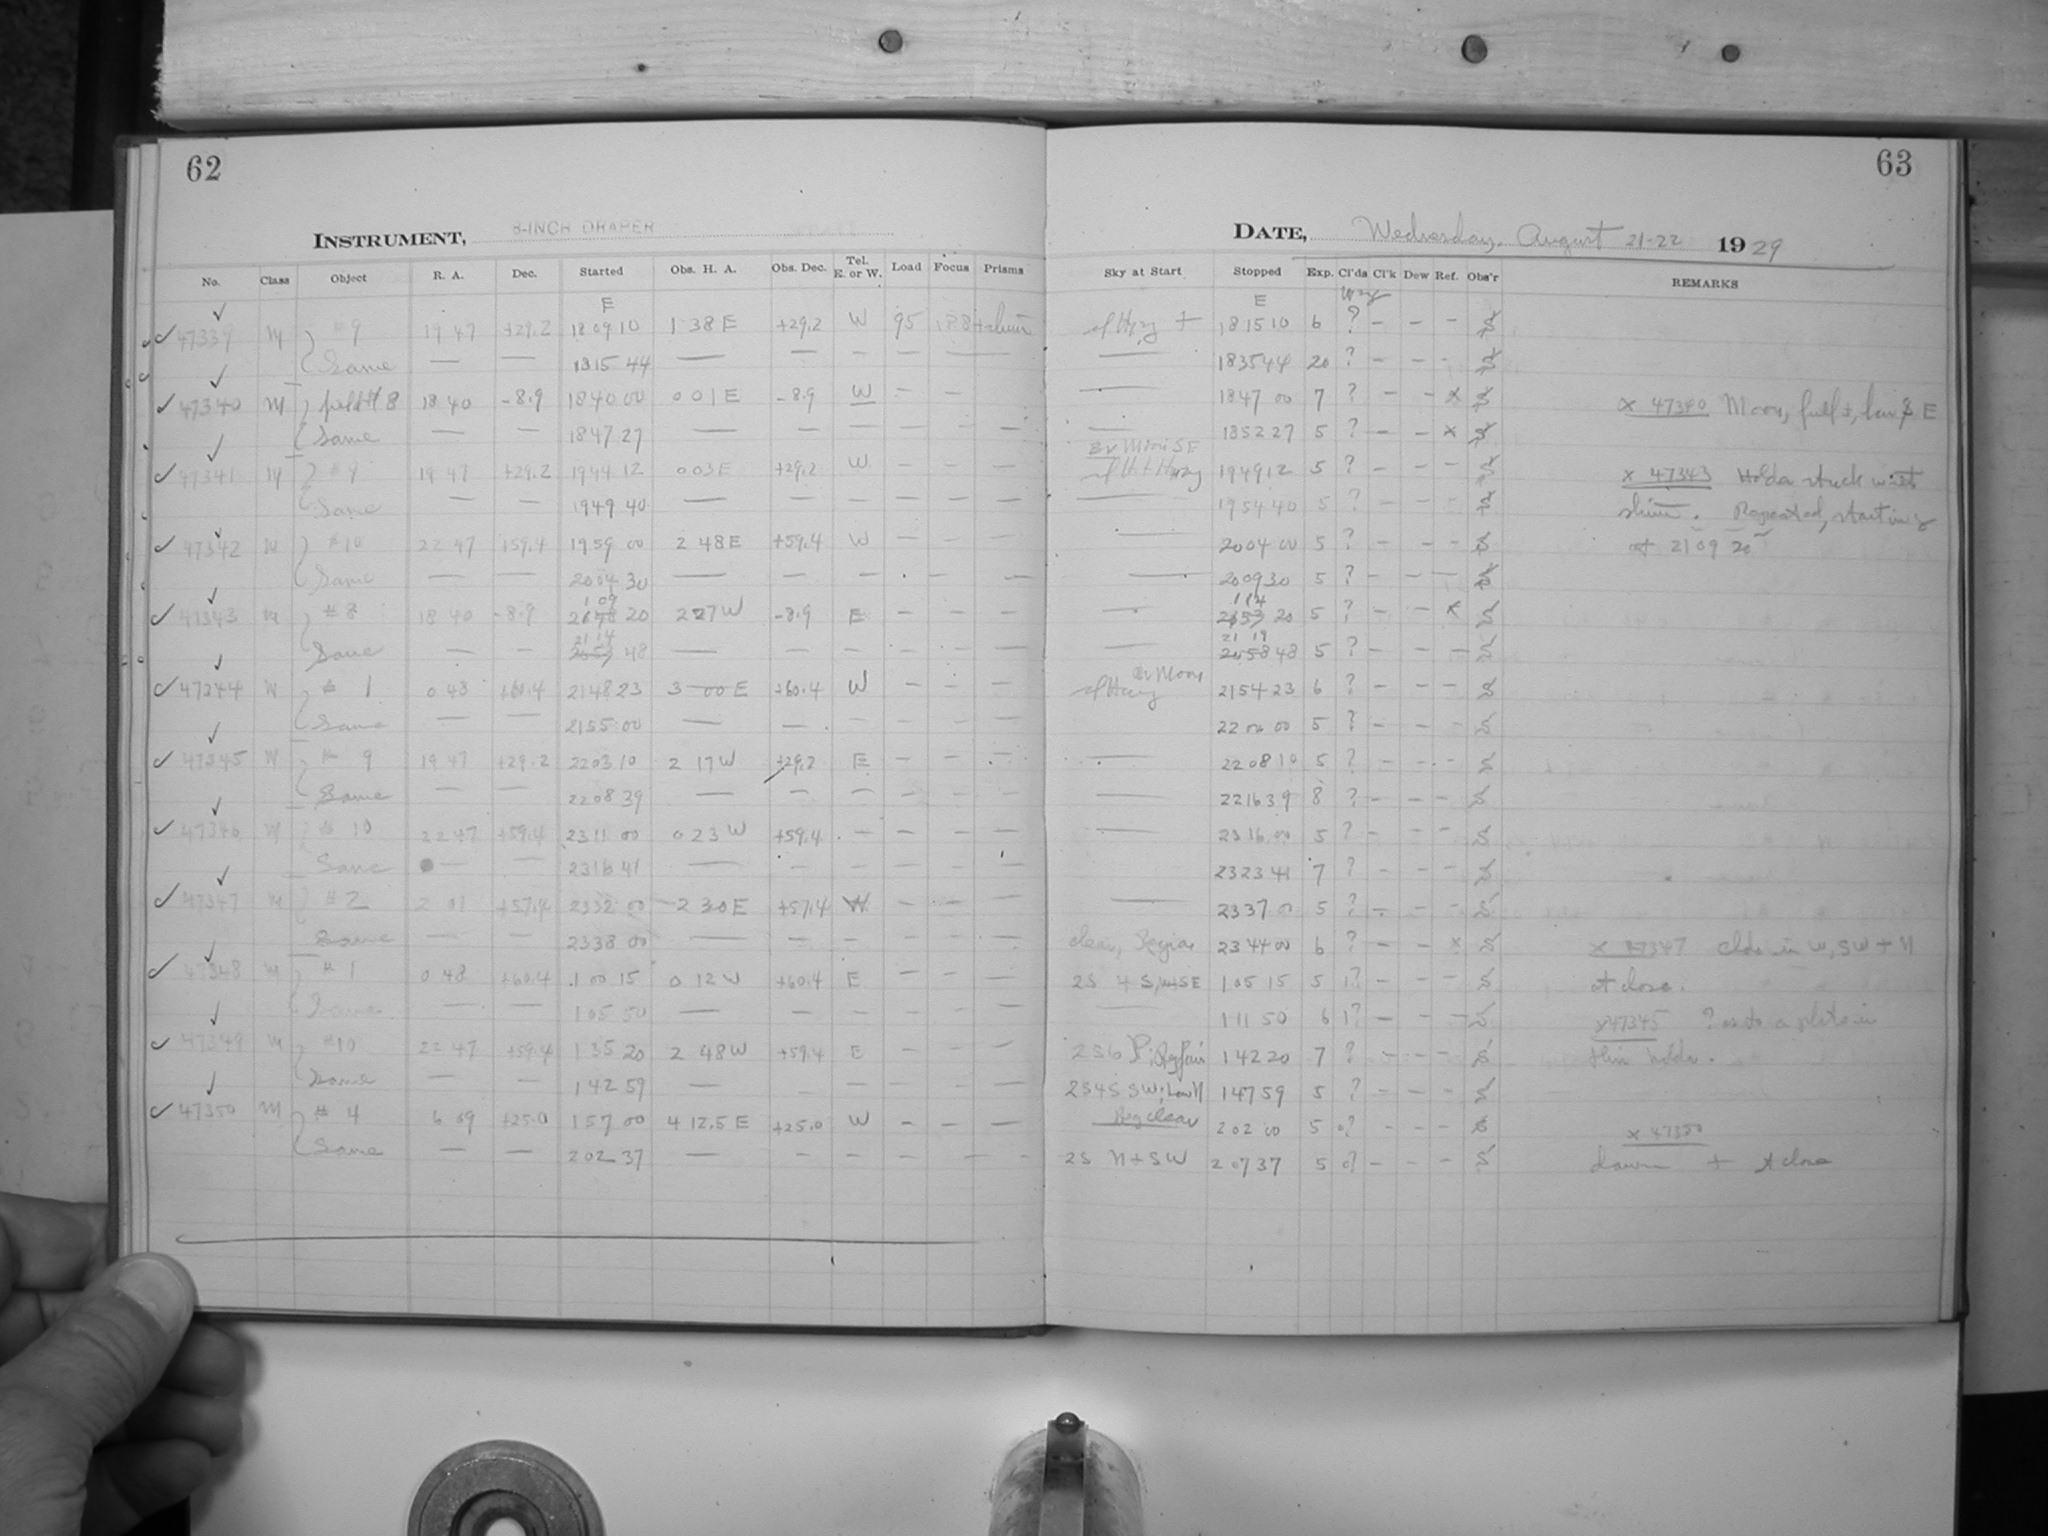 62
63
INSTRUMENT, 8-INCH DRAPER
DATE, Wednesday, August 21-22 1929
No. Class Object R. A. Dec. Started Obs. H. A. Obs. Dec. Tel. E. or W. Load Focus Prisms Sky at Start Stopped Exp. Cl'ds Cl'k Dew Ref. Obs'r REMARKS
E E
47339 M #9 19 47 +29.2 18 09 10 1 38 E +29.2 W 95 18 15 10 6 ? — — —
Same — — 18 15 44 — — — — — — — 18 35 44 20 ? — —
47340 M field #8 18 40 -8.9 18 40 00 0 01 E -8.9 W — — — 18 47 00 7 ? — — x x 47340 Moon, full +, low, E
Same — — 18 47 27 — — — — — — — 18 52 27 5 ? — — x
Br Moon SE
47341 M #9 19 47 +29.2 19 44 12 0 03 E +29.2 W — — — 19 49 12 5 ? — — — x 47343 Holder stuck with
Same — — 19 49 40 — — — — — — — 19 54 40 5 ? — — — shim. Repeated, starting
47342 M #10 22 47 +59.4 19 59 00 2 48 E +59.4 W — — — — 20 04 00 5 ? — — — at 21 09 20
Same — — 20 04 30 — — — — — — — 20 09 30 5 ? — — —
47343 M #8 18 40 -8.9 20 48 20 2 27 W -8.9 E — — — — 20 53 20 5 ? — — x
1 09 1 14
Same — — 48 — — — — — — 20 58 48 5 ? — — —
21 14 21 19
Br Moon
47344 M # 1 0 48 +60.4 21 48 23 3 00 E +60.4 W — — — 21 54 23 6 ? — — —
Same — — 21 55 00 — — — — — — 22 00 00 5 ? — — —
47345 M # 9 19 47 +29.2 22 03 10 2 17 W +29.2 E — — — — 22 08 10 5 ? — — —
Same — — 22 08 39 — — — — — — — 22 16 39 8 ? — — —
47346 M # 10 22 47 +59.4 23 11 00 0 23 W +59.4 — — — — — 23 16 00 5 ? — — —
Same — — 23 16 41 — — — — — — 23 23 41 7 ? — — —
47347 M #2 2 01 +57.4 23 32 00 2 30 E +57.4 W — — — — 23 37 00 5 ? — — —
Same — — 23 38 00 — — — — — — clear, 23 44 00 6 ? — — x x 47347 clds in W, SW + N
47348 M # 1 0 48 +60.4 1 00 15 0 12 W +60.4 E — — — 1 05 15 5 1? — — — at close.
Same — — 1 05 50 — — — — — — — 1 11 50 6 1? — — — x 47345 ? as to a plate in
47349 M #10 22 47 +59.4 1 35 20 2 48 W +59.4 E — — — 1 42 20 7 ? — — — this holder.
Same — — 1 42 59 — — — — — — 1 47 59 5 ? — — —
47350 M # 4 6 09 +25.0 1 57 00 4 12.5 E +25.0 W — — — 2 02 00 5 0? — — — x 47350
Same — — 2 02 37 — — — — — — 2S N + SW 2 07 37 5 0? — — — dawn + at close